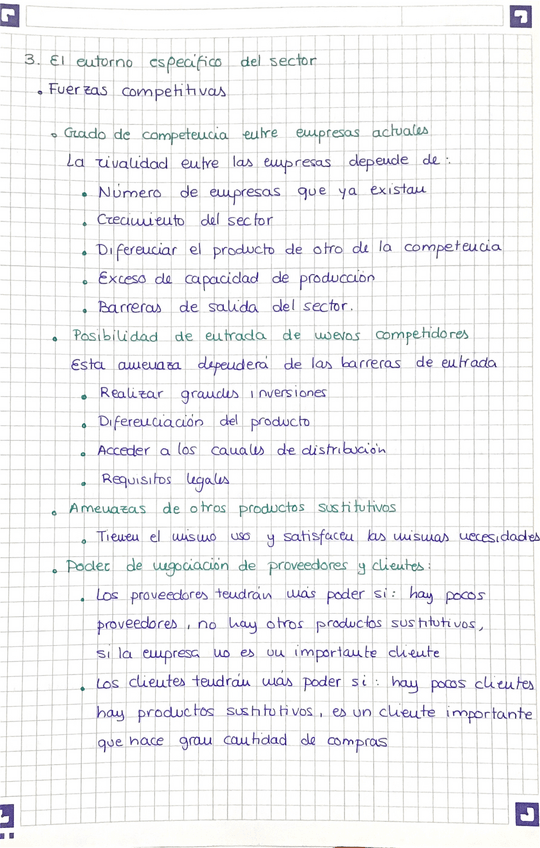 3. El entorno específico del sector
• Fuerzas competitivas
• Grado de competencia entre empresas actuales
La rivalidad entre las empresas depende de:
• Número de empresas que ya existan
• Crecimiento del sector
• Diferenciar el producto de otro de la competencia
• Exceso de capacidad de producción
• Barreras de salida del sector.
• Posibilidad de entrada de nuevos competidores
Esta amenaza dependerá de las barreras de entrada
• Realizar grandes inversiones
• Diferenciación del producto
• Acceder a los canales de distribución
• Requisitos legales
• Amenazas de otros productos sustitutivos
• Tienen el mismo uso y satisfacen las mismas necesidades
• Poder de negociación de proveedores y clientes:
• Los proveedores tendrán más poder si: hay pocos
proveedores, no hay otros productos sustitutivos,
si la empresa no es un importante cliente
• Los clientes tendrán más poder si: hay pocos clientes
hay productos sustitutivos, es un cliente importante
que hace gran cantidad de compras